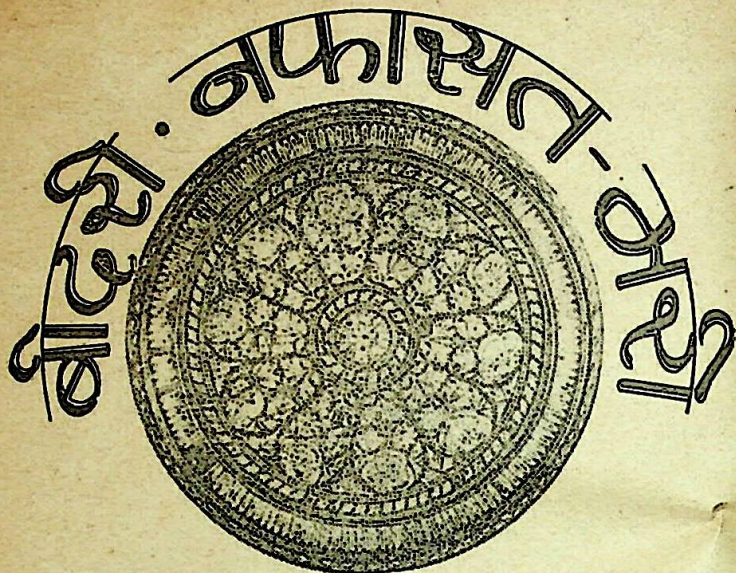 बीदरी · नफासत-भरी